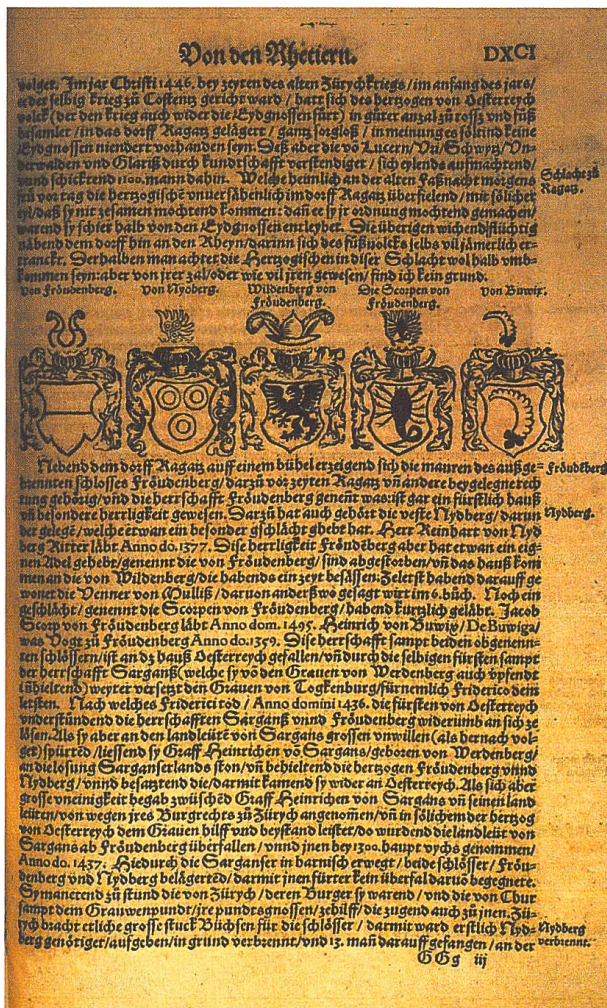 Von den Rhetiern. DXCI
volget. Im jar Christi 1446. bey zeyten des alten Zürychkriegs/im anfang des jars/
eeder selbig krieg zů Costentz gericht ward / hatt sich des hertzogen von Oesterreych
volck (der den krieg auch wider die Eydgnossen fürt) in gůter anzal zů rossz vnd fůß
besamlet/in das dorff Ragatz gelägert / gantz sorgloß / in meinung es söltind keine
Eydgnossen niendert vorhanden seyn. Deß aber die võ Lucern/ Vri/Schwytz/Vn-
derwalden vnd Glariß durch kundtschafft verstendiget / sich eylends aufmachtend/
vnnd schicktend 1100. mann dahin. Welche heimlich an der alten Faßnacht morgens
frů vor tag die hertzogischẽ vnuersähenlich im dorff Ragatz überfielend / mit sölicher
eyl/daß sy nit zesamen mochtend kommen: dañ ee sy jr ordnung mochtend gemachen/
warend sy schier halb von den Eydgnossen entleybet. Die überigen wichend flüchtig
näbend dem dorff hin an den Rheyn/darinn sich des fůßvolcks selbs vil jämerlich er-
tranckt. Derhalben man achtet die Hertzogischen in diser Schlacht wol halb vmb-
kommen seyn: aber von jrer zal/oder wie vil jren gewesen/ find ich kein grund.
Schlacht zů
Ragatz.
Von Fröudenberg. Von Nydberg. Wildenberg von Die Scorpen von Von Buwix.
Fröudenberg. Fröudenberg.
Nebend dem dorff Ragatz auff einem bühel erzeigend sich die mauren des außge-
brennten schlosses Fröudenberg/ darzů vor zeyten Ragatz vñ andere beygelegne rech
tung gehörig/vnd die herrschafft Fröudenberg geneñt was: ist gar ein fürstlich hauß
vñ besondere herrligkeit gewesen. Darzů hat auch gehört die veste Nydberg/ darun
der gelegẽ/ welche etwan ein besonder gschlächt ghebt hat. Herr Reinhart von Nyd
berg Ritter läbt Anno do. 1377. Dise herrligkeit Fröudẽberg aber hat etwan ein eig-
nen Adel gehebt/genennt die von Fröudenberg/ sind abgestorben/vñ das hauß kom
men an die von Wildenberg/die habends ein zeyt besässen. Zeletst habend darauff ge
wonet die Venner von Mulliß/ daruon anderßwo gesagt wirt im 6. bůch. Noch ein
geschlächt / genennt die Scorpen von Fröudenberg / habend kurtzlich geläbt. Jacob
Scorp von Fröudenberg läbt Anno dom. 1495. Heinrich von Buwix/ De Buwiga/
was Vogt zů Fröudenberg Anno do. 1359. Dise herrschafft sampt beiden obgenenn-
ten schlössern/ist an dz hauß Oesterreych gefallen/vñ durch die selbigen fürsten sampt
der herrschafft Sarganß (welche sy võ den Grauen von Werdenberg auch vpfendt
ïñhieltend) weyter versetzt den Grauen von Togkenburg/fürnemlich Friderico dem
letsten. Nach welches Friderici tod / Anno domini 1436. die fürsten von Oesterreych
vnderstůndend die herrschafften Sarganß vnnd Fröudenberg widerumb an sich ze
lösen. Als sy aber an den landleütẽ von Sargans grossen vnwillen (als hernach vol-
get) spürtẽd /liessend sy Graff Heinrichen võ Sargans/geboren von Werdenberg/
an die losung Sarganserlands ston/ vñ behieltend die hertzogen Fröudenberg vnnd
Nydberg/ vnnd besatztend die/darmit kamend sy wider an Oesterreych. Als sich aber
grosse vneinigkeit begab zwüschẽd Graff Heinrichen von Sargans vñ seinen land
leüten/ von wegen jres Burgrechts zů Zürych angenom̃en/vñ in sölichem der hertzog
von Oesterreych dem Grauen hilff vnd beystand leistet/do wurdend die landleüt von
Sargans ab Fröudenberg überfallen / vnnd jnen bey 1300. haupt vychs genommen/
Anno do. 1437. Hiedurch die Sarganser in harnisch erwegt / beide schlösser / Fröu-
denberg vnd Nydberg belägertẽd/ darmit jnen fürter kein überfal daruß begegnete.
Sy manetend zů stund die von Zürych / deren Burger sy warend / vnd die von Chur
sampt dem Grauwenpundt/jre pundtsgnossen/ zehilff/ die zugend auch zů jnen. Zü-
rych bracht etliche grosse stuck Büchsen für die schlösser / darmit ward erstlich Nyd-
berg genötiget/aufgeben/in grund verbrennt/vnd 13. mañ darauff gefangen / an der
Fröudẽberg
Nydberg.
Nydberg
verbrennt.
GGg iij